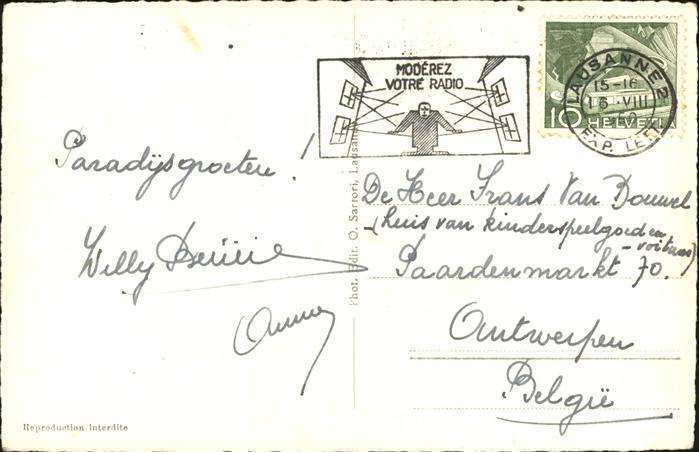 MODÉREZ
VOTRE RADIO
LAUSANNE 2
15-16
VIII
EXP. LET
10 HELVETIA
Paradijsgroeten!
Willy
De Heer Frans Van Bouwel
(huis van kinderspeelgoed en
- voitures)
Paardenmarkt 70.
Antwerpen
België
Phot. Edit. O. Sartori, Lausanne
Reproduction interdite